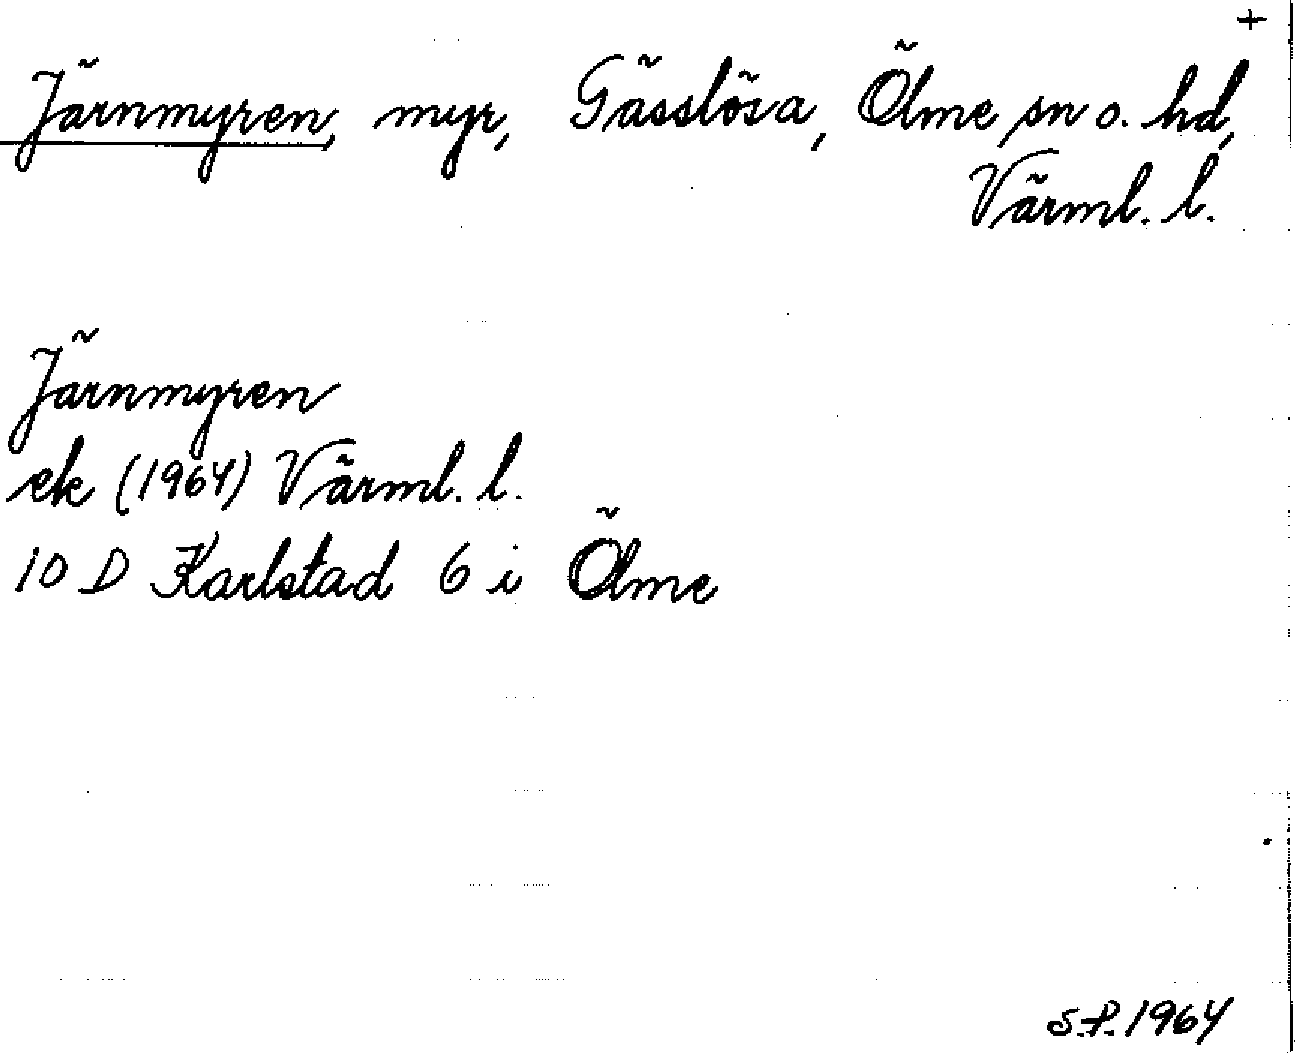 +
Järnmyren, myr, Gässlösa, Ölme sn o. hd,
Värml. l.
Järnmyren
ek (1964) Värml. l.
10 D Karlstad 6 i Ölme
S.P. 1964